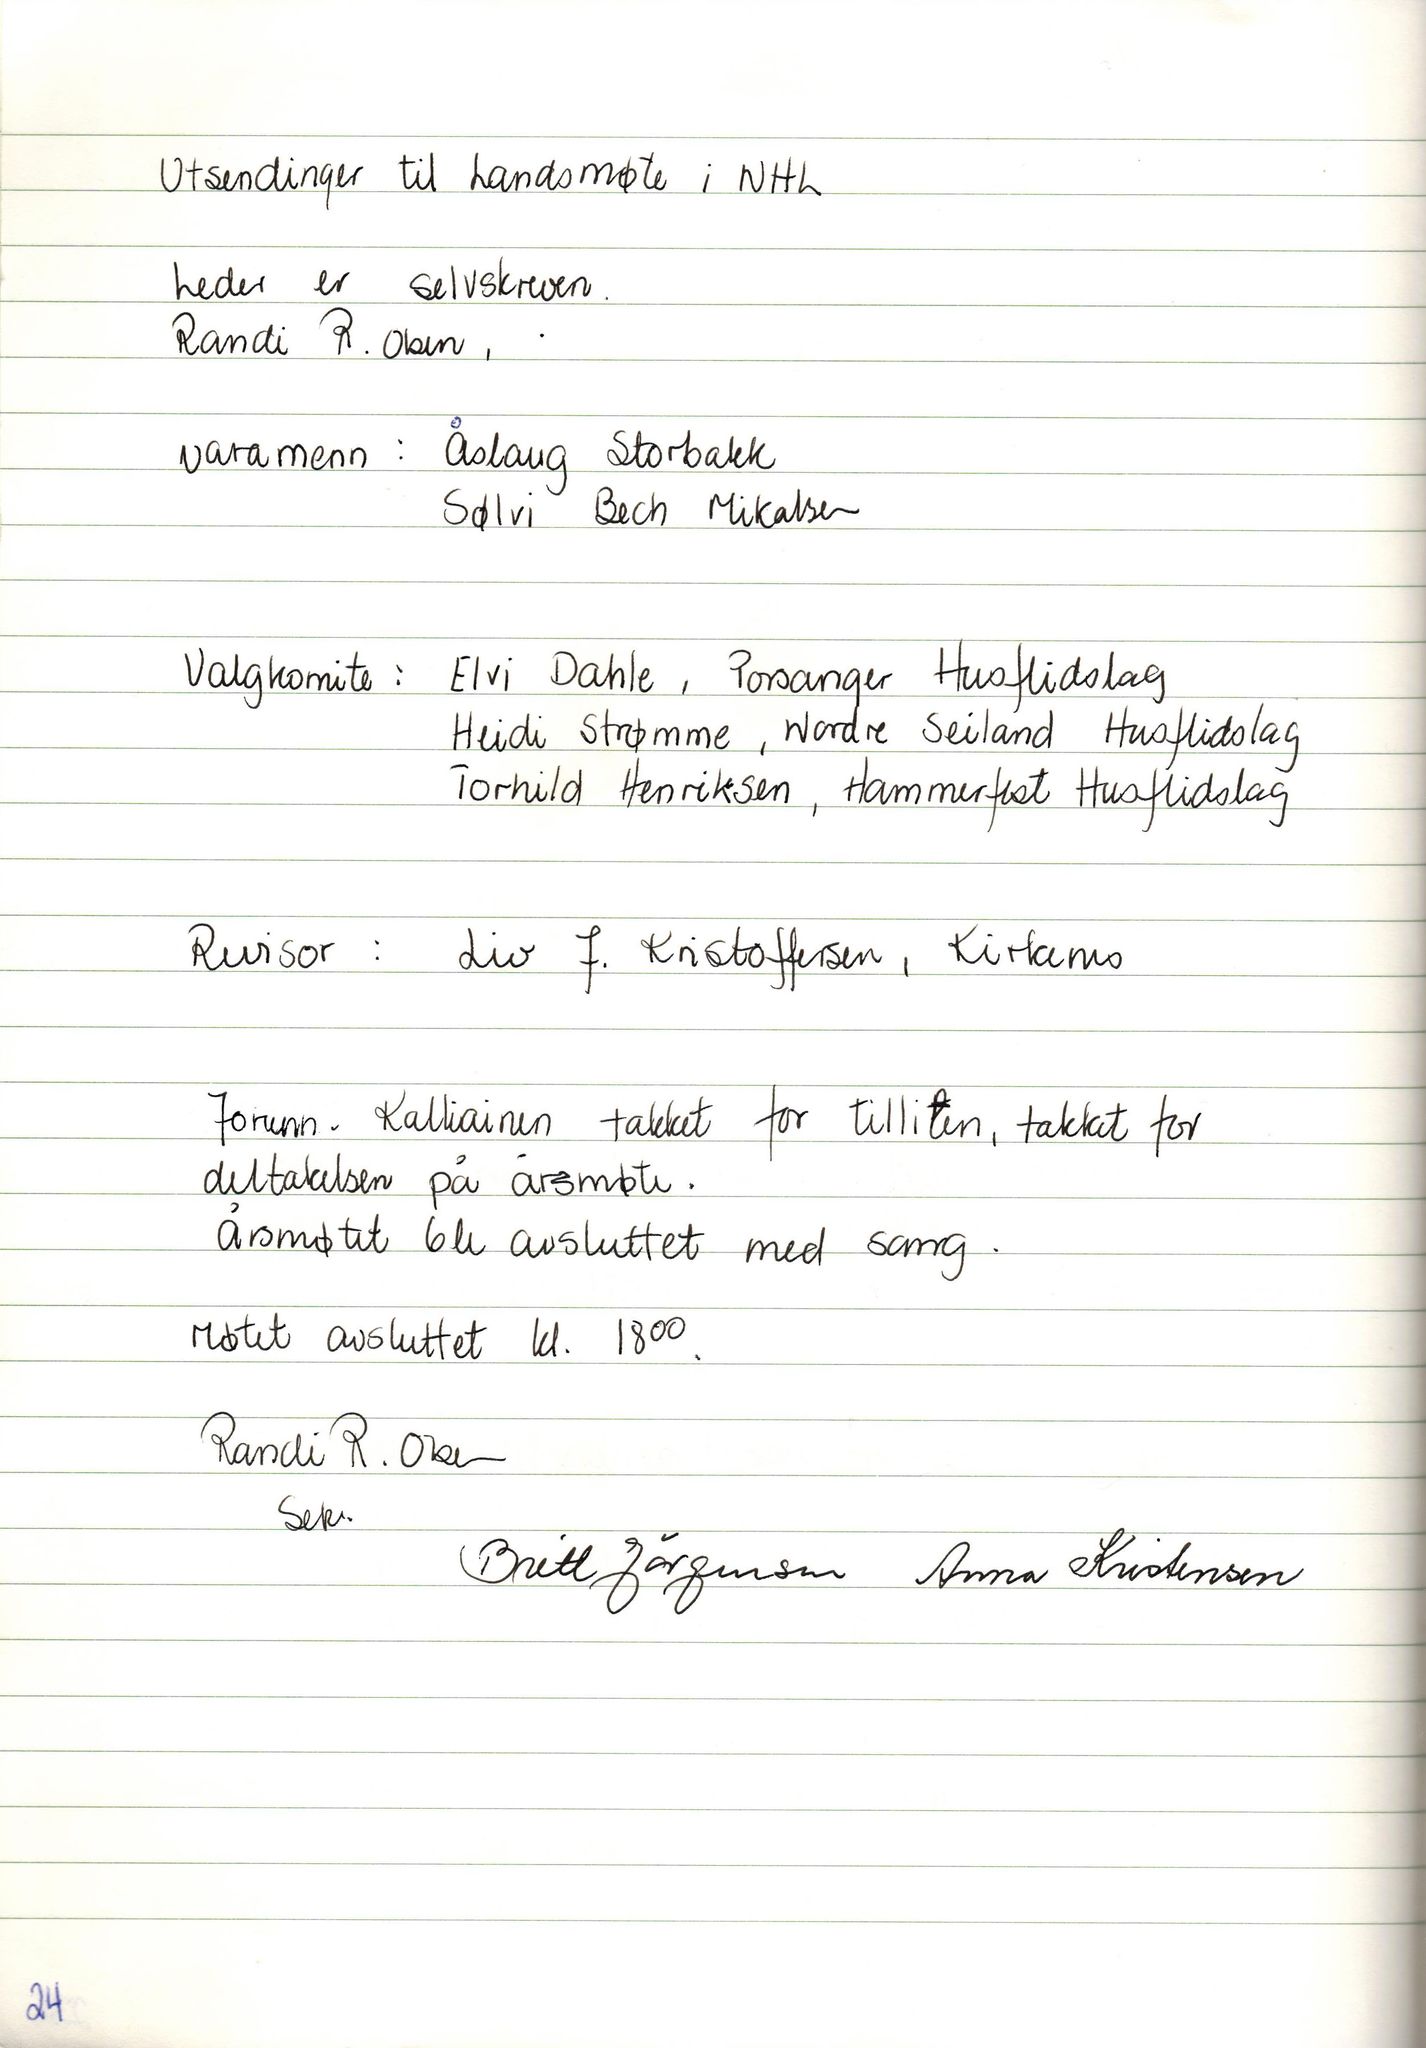 Utsendinger til Landsmøte i NHL
Leder er selvskreven.
Randi R. Olsen,
varamenn: Åslaug Storbakk
Sølvi Bech Mikalsen
Valgkomite: Elvi Dahle, Porsanger Husflidslag
Heidi Strømme, Nordre Seiland Husflidslag
Torhild Henriksen, Hammerfest Husflidslag
Revisor: Liv J. Kristoffersen, Kirkenes
Jorunn. Kalliainen takket for tilliten, takket for
deltakelsen på årsmøte.
Årsmøtet ble avsluttet med sang.
Møtet avsluttet kl. 1800.
Randi R. Olsen
Sekr.
Britt Jörgensen Anna Kristensen
24